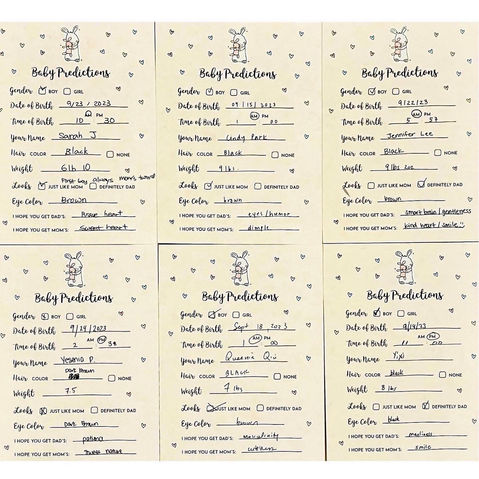 Baby Predictions
Gender BOY GIRL
Date of Birth 9/23/2023
Time of Birth 10 AM PM 30
Your Name Sarah J
Hair COLOR Black NONE
Weight 6lb 10
First boy always mom's twin!
Looks JUST LIKE MOM DEFINITELY DAD
Eye Color Brown
I HOPE YOU GET DAD'S: heart
I HOPE YOU GET MOM'S: Sweet heart
Baby Predictions
Gender BOY GIRL
Date of Birth 09/15/2023
Time of Birth 1 AM PM 00
Your Name Cindy Park
Hair COLOR Black NONE
Weight 9 lbs
Looks JUST LIKE MOM DEFINITELY DAD
Eye Color brown
I HOPE YOU GET DAD'S: eyes/humor
I HOPE YOU GET MOM'S: dimple
Baby Predictions
Gender BOY GIRL
Date of Birth 9/22/23
Time of Birth 5 AM PM 57
Your Name Jennifer Lee
Hair COLOR Black NONE
Weight 9 lbs 2oz
Looks JUST LIKE MOM DEFINITELY DAD
Eye Color brown
I HOPE YOU GET DAD'S: smart brain/gentleness
I HOPE YOU GET MOM'S: kind heart/smile
Baby Predictions
Gender BOY GIRL
Date of Birth 9/19/2023
Time of Birth 2 AM PM 38
Your Name P.
Dark Brown
Hair COLOR NONE
Weight 7.5
Looks JUST LIKE MOM DEFINITELY DAD
Eye Color Dark Brown
I HOPE YOU GET DAD'S:
I HOPE YOU GET MOM'S:
Baby Predictions
Gender BOY GIRL
Date of Birth Sept 18 2023
Time of Birth 1 AM PM 00
Your Name Queenie Qiu
Hair COLOR BLACK NONE
Weight 7 lbs
Looks JUST LIKE MOM DEFINITELY DAD
Eye Color brown
I HOPE YOU GET DAD'S: masculinity
I HOPE YOU GET MOM'S:
Baby Predictions
Gender BOY GIRL
Date of Birth 9/19/23
Time of Birth 11 AM PM 00
Your Name Yixi
Hair COLOR black NONE
Weight 8 lbs
Looks JUST LIKE MOM DEFINITELY DAD
Eye Color black
I HOPE YOU GET DAD'S: manliness
I HOPE YOU GET MOM'S: smile